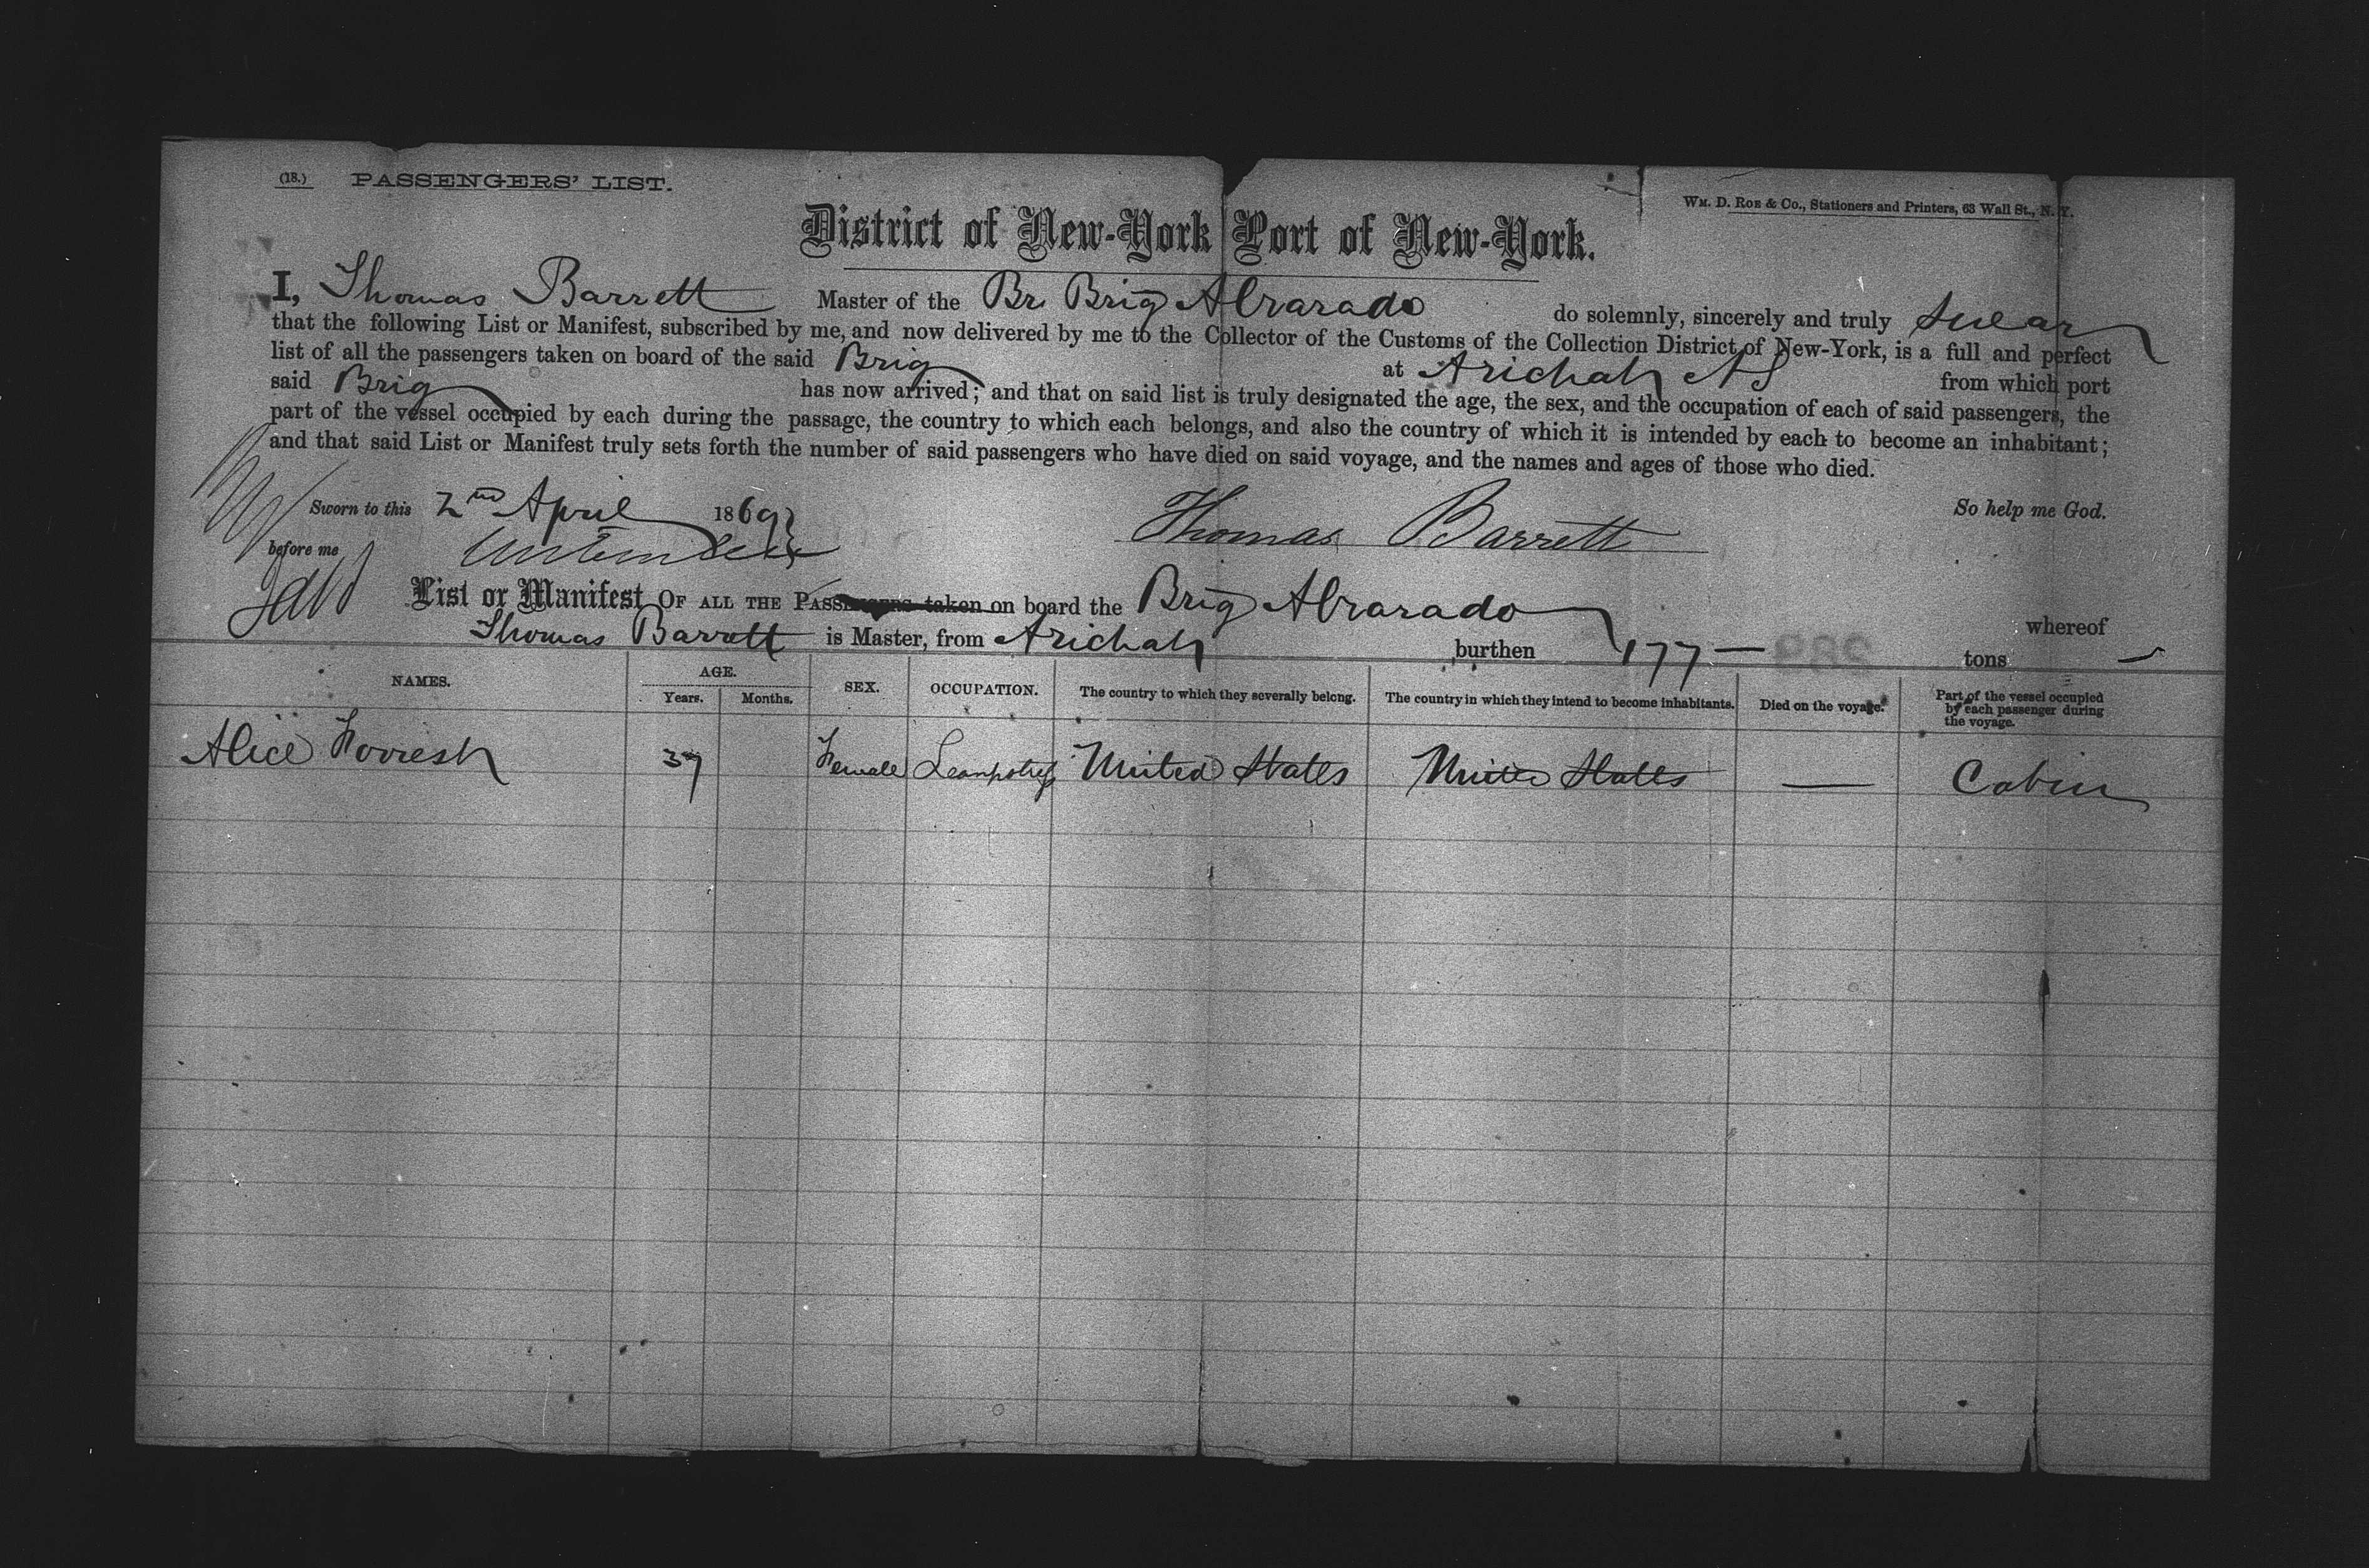 (18.) PASSENGERS' LIST.
WM. D. ROE & CO., Stationers and Printers, 63 Wall St., N. Y.
District of New-York Port of New-York.
I, Thomas Barrett Master of the Br. Brig Alvarado do solemnly, sincerely and truly swear
that the following List or Manifest, subscribed by me, and now delivered by me to the Collector of the Customs of the Collection District of New-York, is a full and perfect
list of all the passengers taken on board of the said Brig at Arichat NS from which port
said Brig has now arrived; and that on said list is truly designated the age, the sex, and the occupation of each of said passengers, the
part of the vessel occupied by each during the passage, the country to which each belongs, and also the country of which it is intended by each to become an inhabitant;
and that said List or Manifest truly sets forth the number of said passengers who have died on said voyage, and the names and ages of those who died.
So help me God.
Sworn to this 2nd April 1869
Thomas Barrett
before me
List or Manifest OF ALL THE PASSENGERS taken on board the Brig Alvarado whereof
Thomas Barrett is Master, from Arichat burthen 177 — tons
NAMES. AGE. Years. Months. SEX. OCCUPATION. The country to which they severally belong. The country in which they intend to become inhabitants. Died on the voyage. Part of the vessel occupied by each passenger during the voyage.
Alice Forrest 37 Female United States United States — Cabin